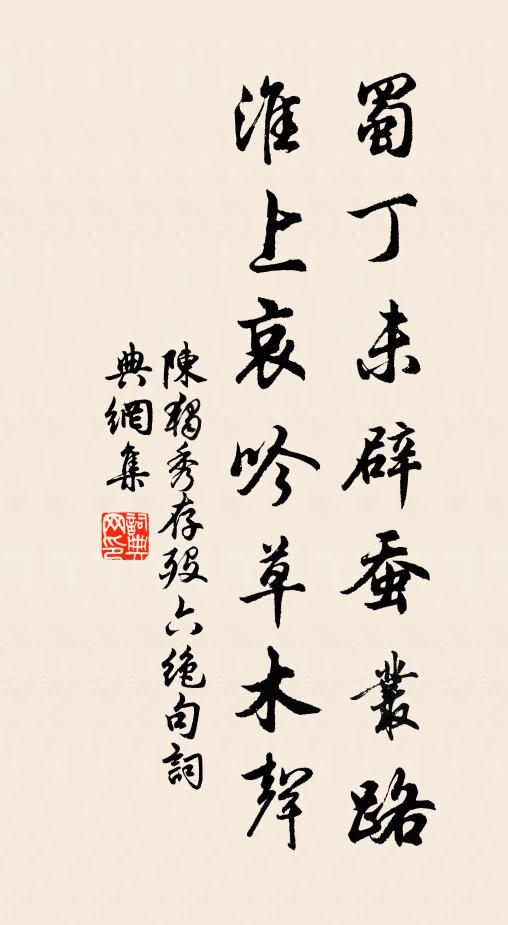 蜀丁未辟蚕叢路
淮上哀吟草木聲
陳獨秀存殁六绝句詞
典網集
詞典
网印